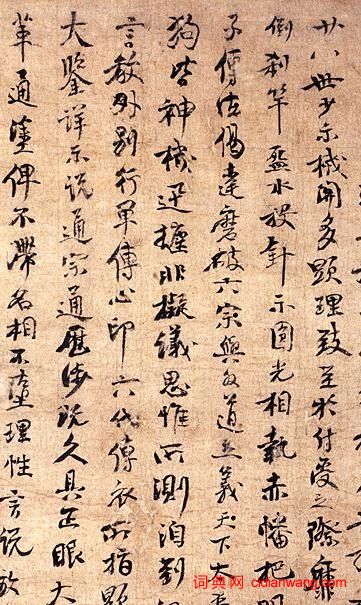 廿八世少示機關多顯理致至於付受之際靡
倒刹竿盋水投針示圓光相執赤幡把
子傳法偈達磨破六宗與外道立義天下太平
狗皆神機迅捷非擬議思惟所測洎到
言教外別行單傳心印六代傳衣所指顯
大鑒詳示說通宗通歷涉既久具正眼大
革通塗俾不滯名相不墮理性言說放
词典网 cidianwang.com